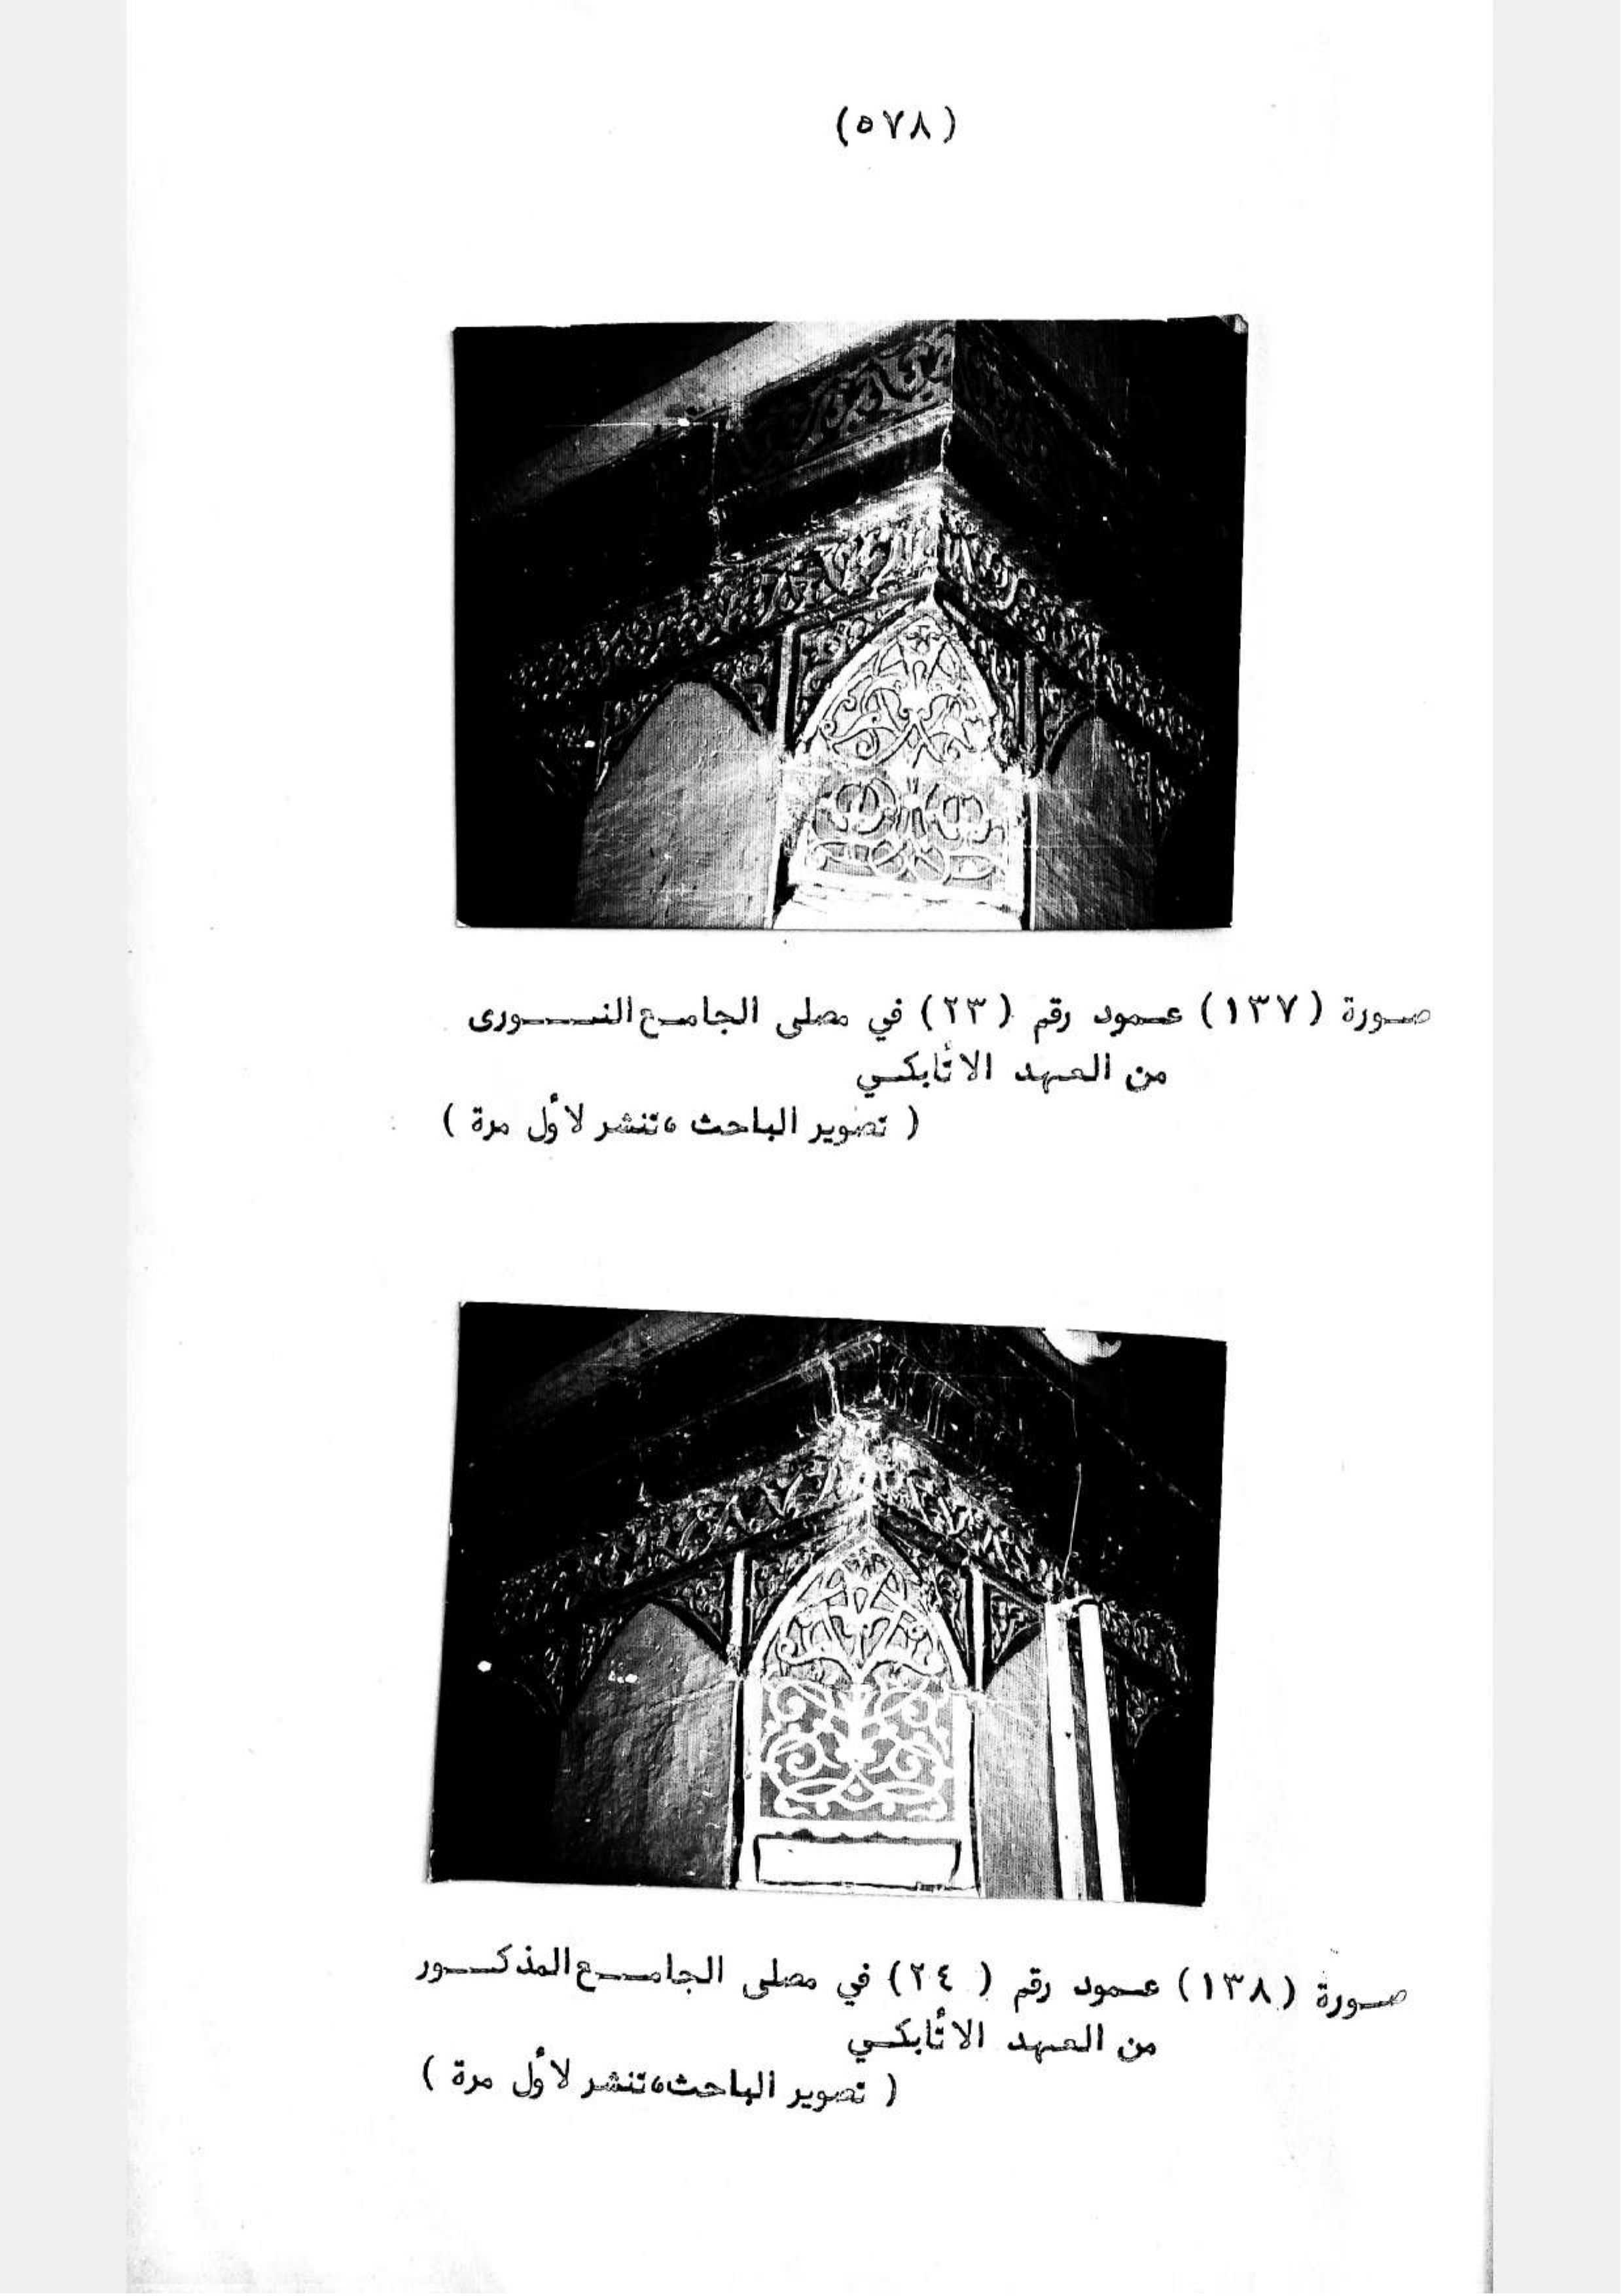 (٥٧٨)
صورة (١٣٧) عمود رقم (٢٣) في مصلى الجامع النورى
من العهد الاتأبكي
( تصوير الباحث ، تنشر لأول مرة )
صورة (١٣٨) عمود رقم ( ٢٤) في مصلى الجامع المذكور
من العهد الاتأبكي
( تصوير الباحث ، تنشر لأول مرة )